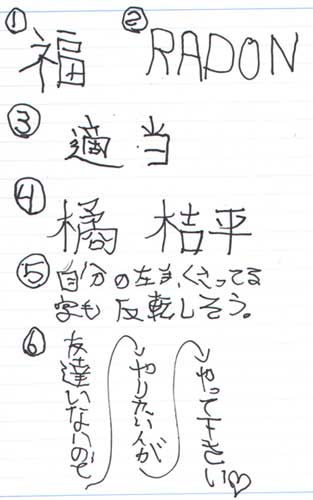 ① 福
② RADON
③ 適当
④ 橘 桔平
⑤ 自分の左手、くさってる
字も反転しそう。
⑥ 友達いないので
やりたい人が
やって下さい♡